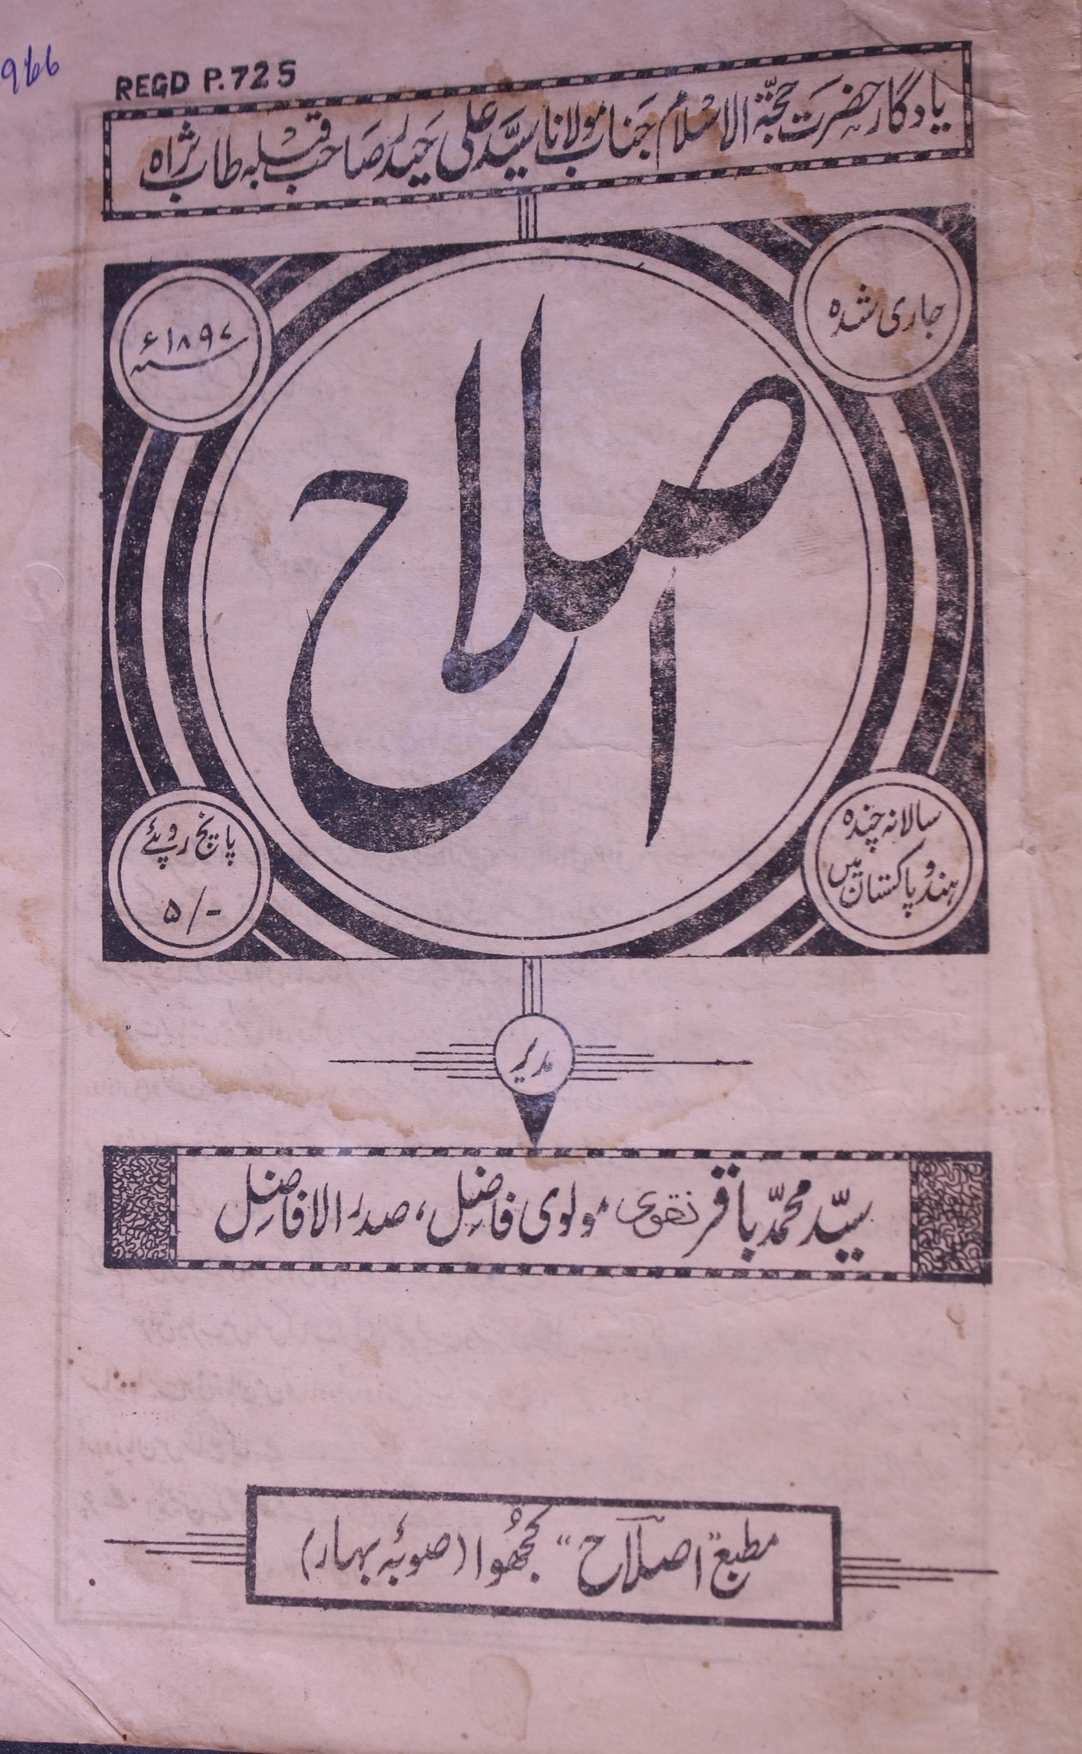 966
REGD P.725
یادگار حضرت حجۃ الاسلام جناب مولانا سیّد علی حیدر صاحب قبلہ طاب ثراہ
جاری شدہ
۱۸۹۷ء
اصلاح
سالانہ چندہ
ہندوپاکستان میں
پانچ روپئے
۵/-
مدیر
سیّد محمّد باقر نقوی مولوی فاضل، صدر الافاضل
مطبع "اصلاح" کھجوا (صوبۂ بہار)